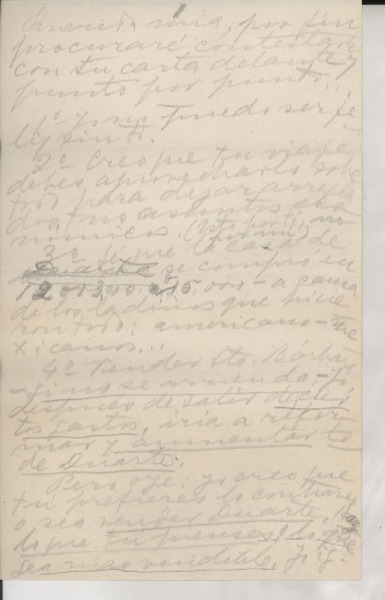 Querida mia, por fin
procuraré contestarte
con tu carta delante y
punto por punto:
1º Yo no puedo ser fe-
liz sin ti.
2º Creo que tu viaje
debes aprovecharlo sobre
todo para dejar arregla
dos tus asuntos eco
nómicos. (Esto por ti, no
por mi)
3º Supe la casa de
Duarte se compró en
12 o 13,00 o 15,000 - a causa
de los ladinos que hicie
ron todo: americano-me
xicanos...
4º Vender Sta. Bárba
- si no se arrienda. - Yo,
después de saber de cier
tos gastos, iría a refor
mar y aumentar lo
de Duarte.
Pero oye: yo creo que
tu prefieres lo contrari
o sea vender Duarte,
lo que tu pienses, lo que
sea mas vendible. Yo ig-